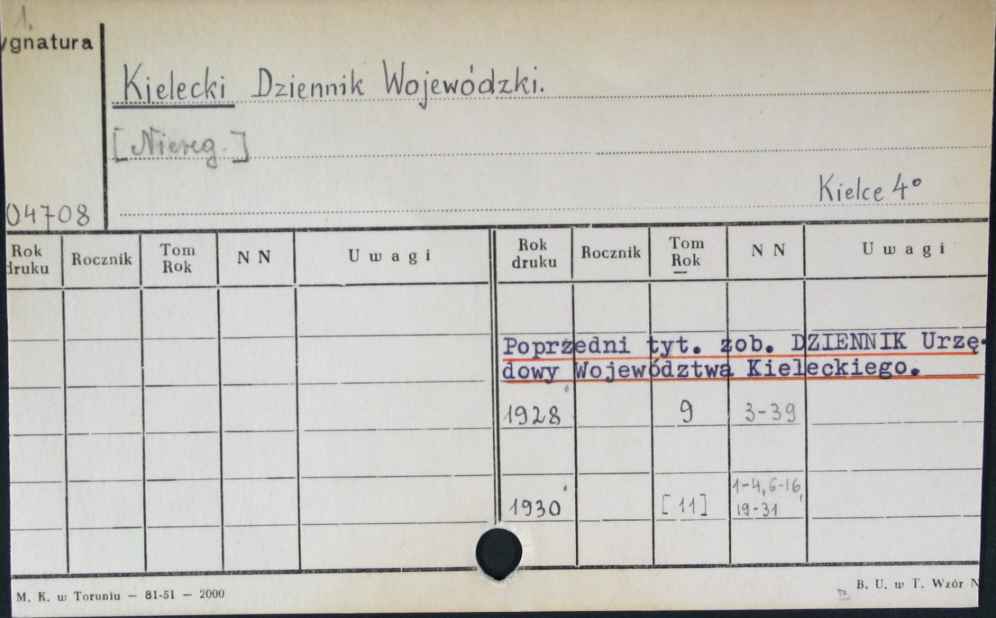 1.
ygnatura
Kielecki Dziennik Wojewódzki.
[Niereg.]
Kielce 4°
04708
Rok druku Rocznik Tom Rok N N Uwagi Rok druku Rocznik Tom Rok N N Uwagi
Poprzedni tyt. zob. DZIENNIK Urzę-
dowy Województwa Kieleckiego.
1928 9 3-39
1930 [11] 1-4, 6-16,
19-31
M. K. w Toruniu — 81-51 — 2000
B. U. w T. Wzór N